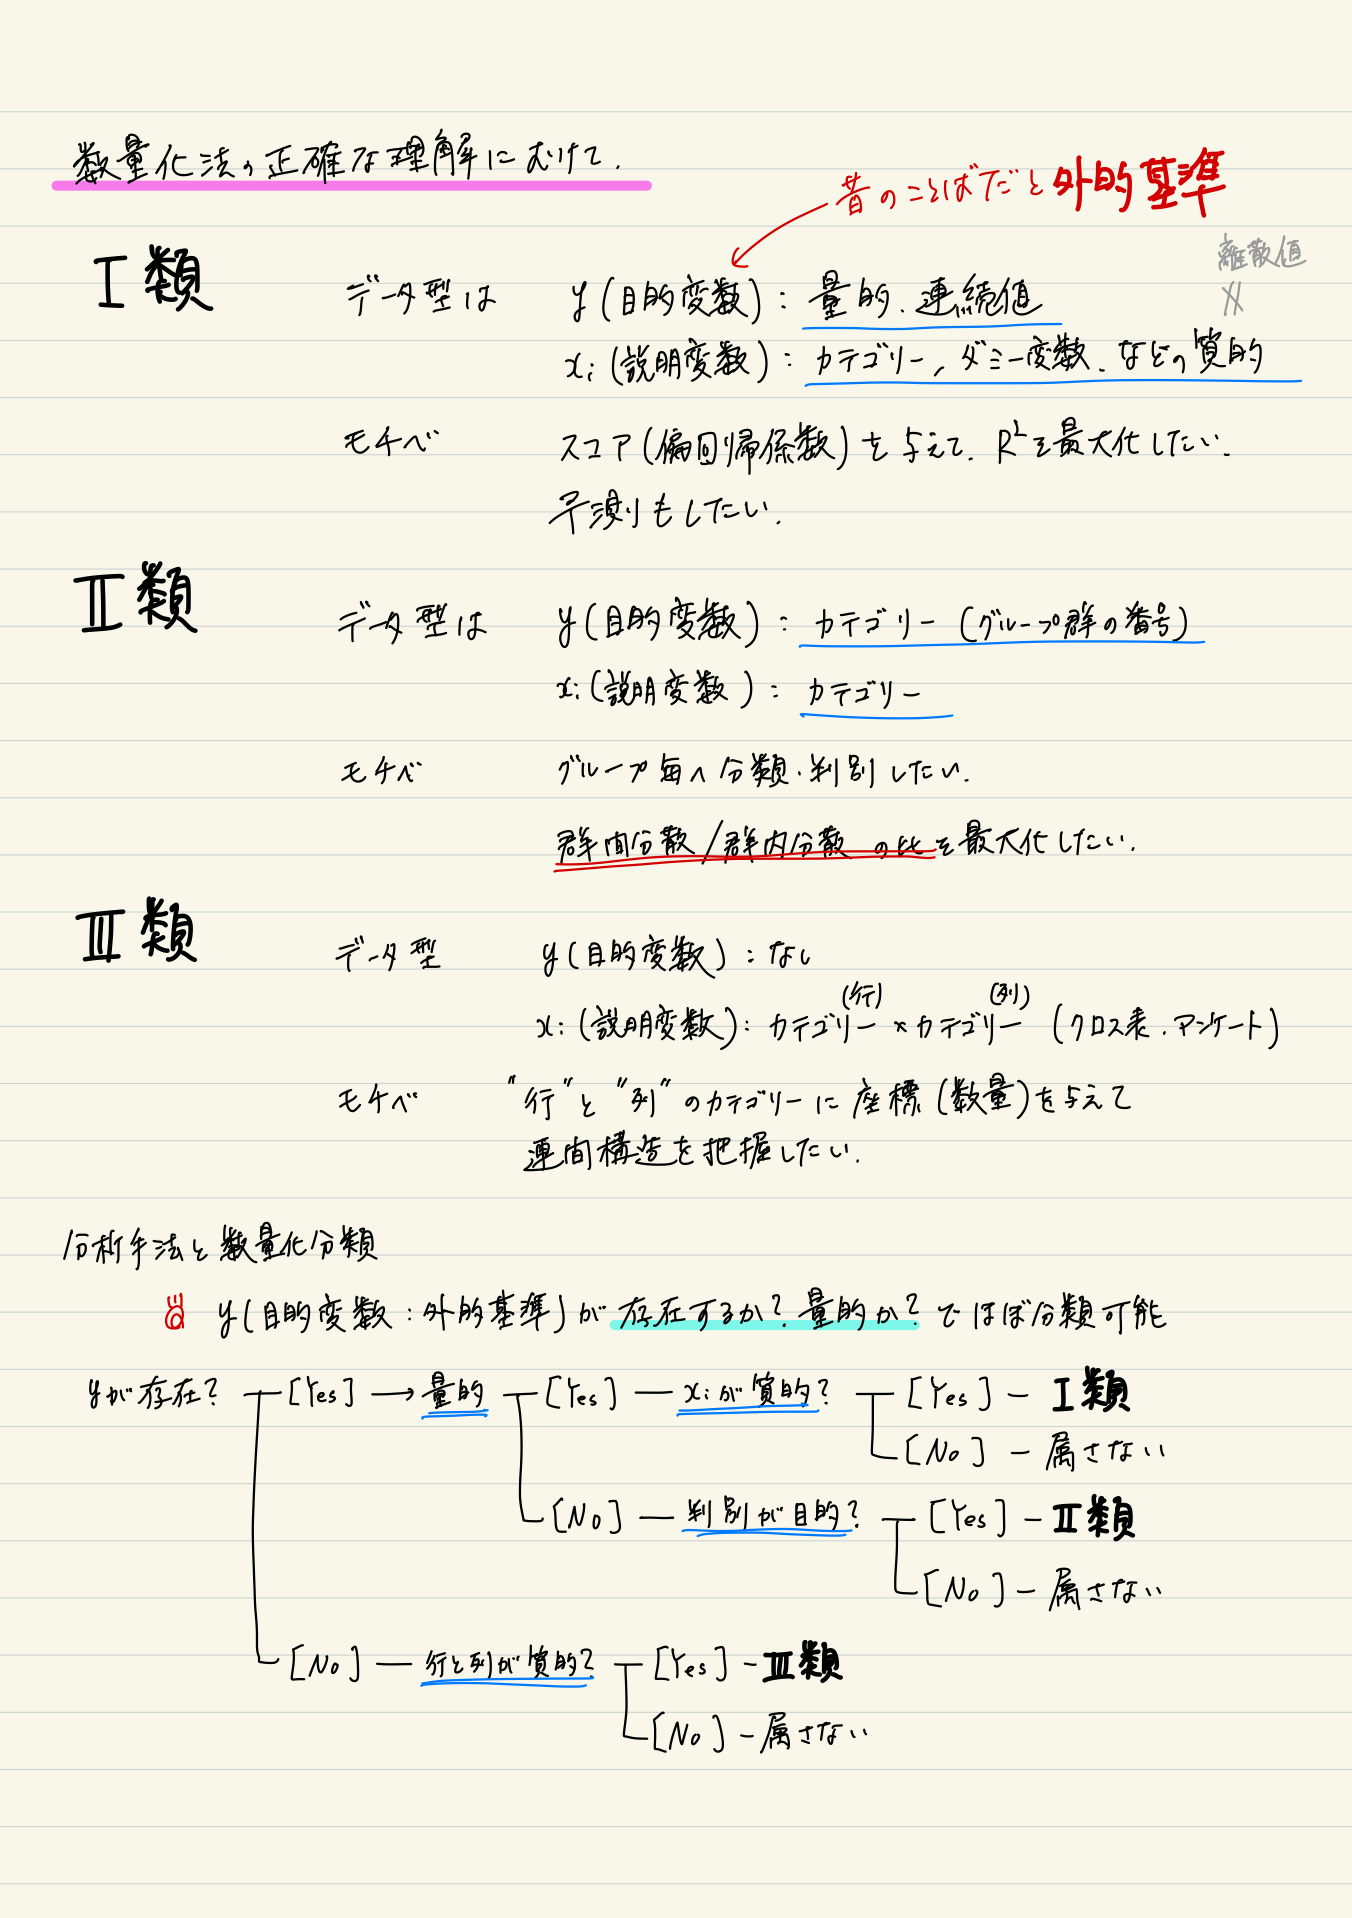 数量化法の正確な理解にむけて.
昔のことばだと外的基準
離散値
〃
I類 データ型は y(目的変数): 量的.連続値
xi(説明変数): カテゴリー, ダミー変数.などの質的
モチベ スコア(偏回帰係数)を与えて. R²を最大化したい.
予測もしたい.
II類 データ型は y(目的変数): カテゴリー(グループ群の番号)
xi(説明変数): カテゴリー
モチベ グループ毎へ分類・判別したい.
群間分散/群内分散 の比を最大化したい.
III類 データ型 y(目的変数): なし
(行) (列)
xi(説明変数): カテゴリー×カテゴリー (クロス表.アンケート)
モチベ "行"と"列"のカテゴリーに座標(数量)を与えて
連間構造を把握したい.
分析手法と数量化分類
y(目的変数:外的基準)が存在するか?量的か?でほぼ分類可能
yが存在? [Yes] → 量的 [Yes] xiが質的? [Yes] - I類
[No] - 属さない
[No] 判別が目的? [Yes] - II類
[No] - 属さない
[No] 行と列が質的? [Yes] - III類
[No] - 属さない